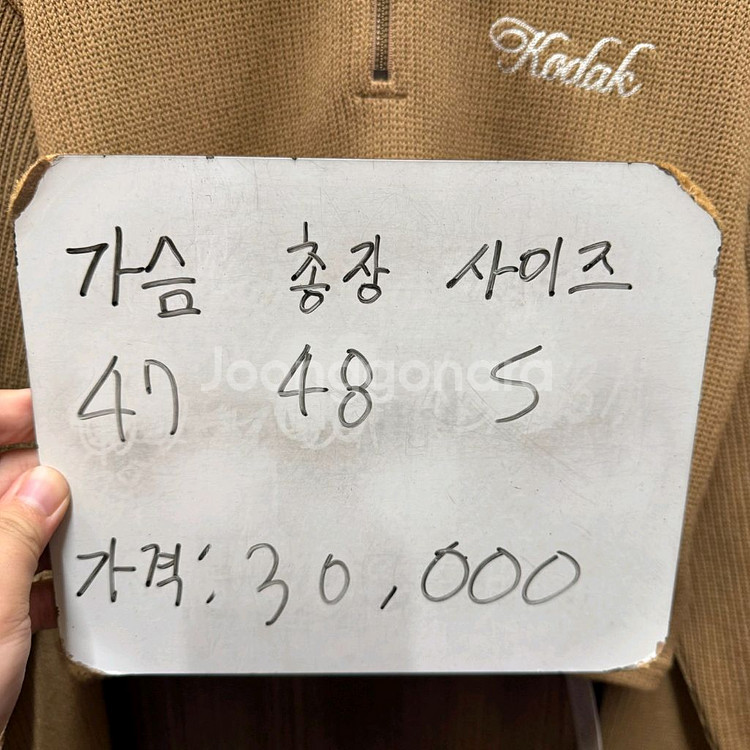 Kodak
가슴 총장 사이즈
47 48 S
Joonggonara
가격: 30,000